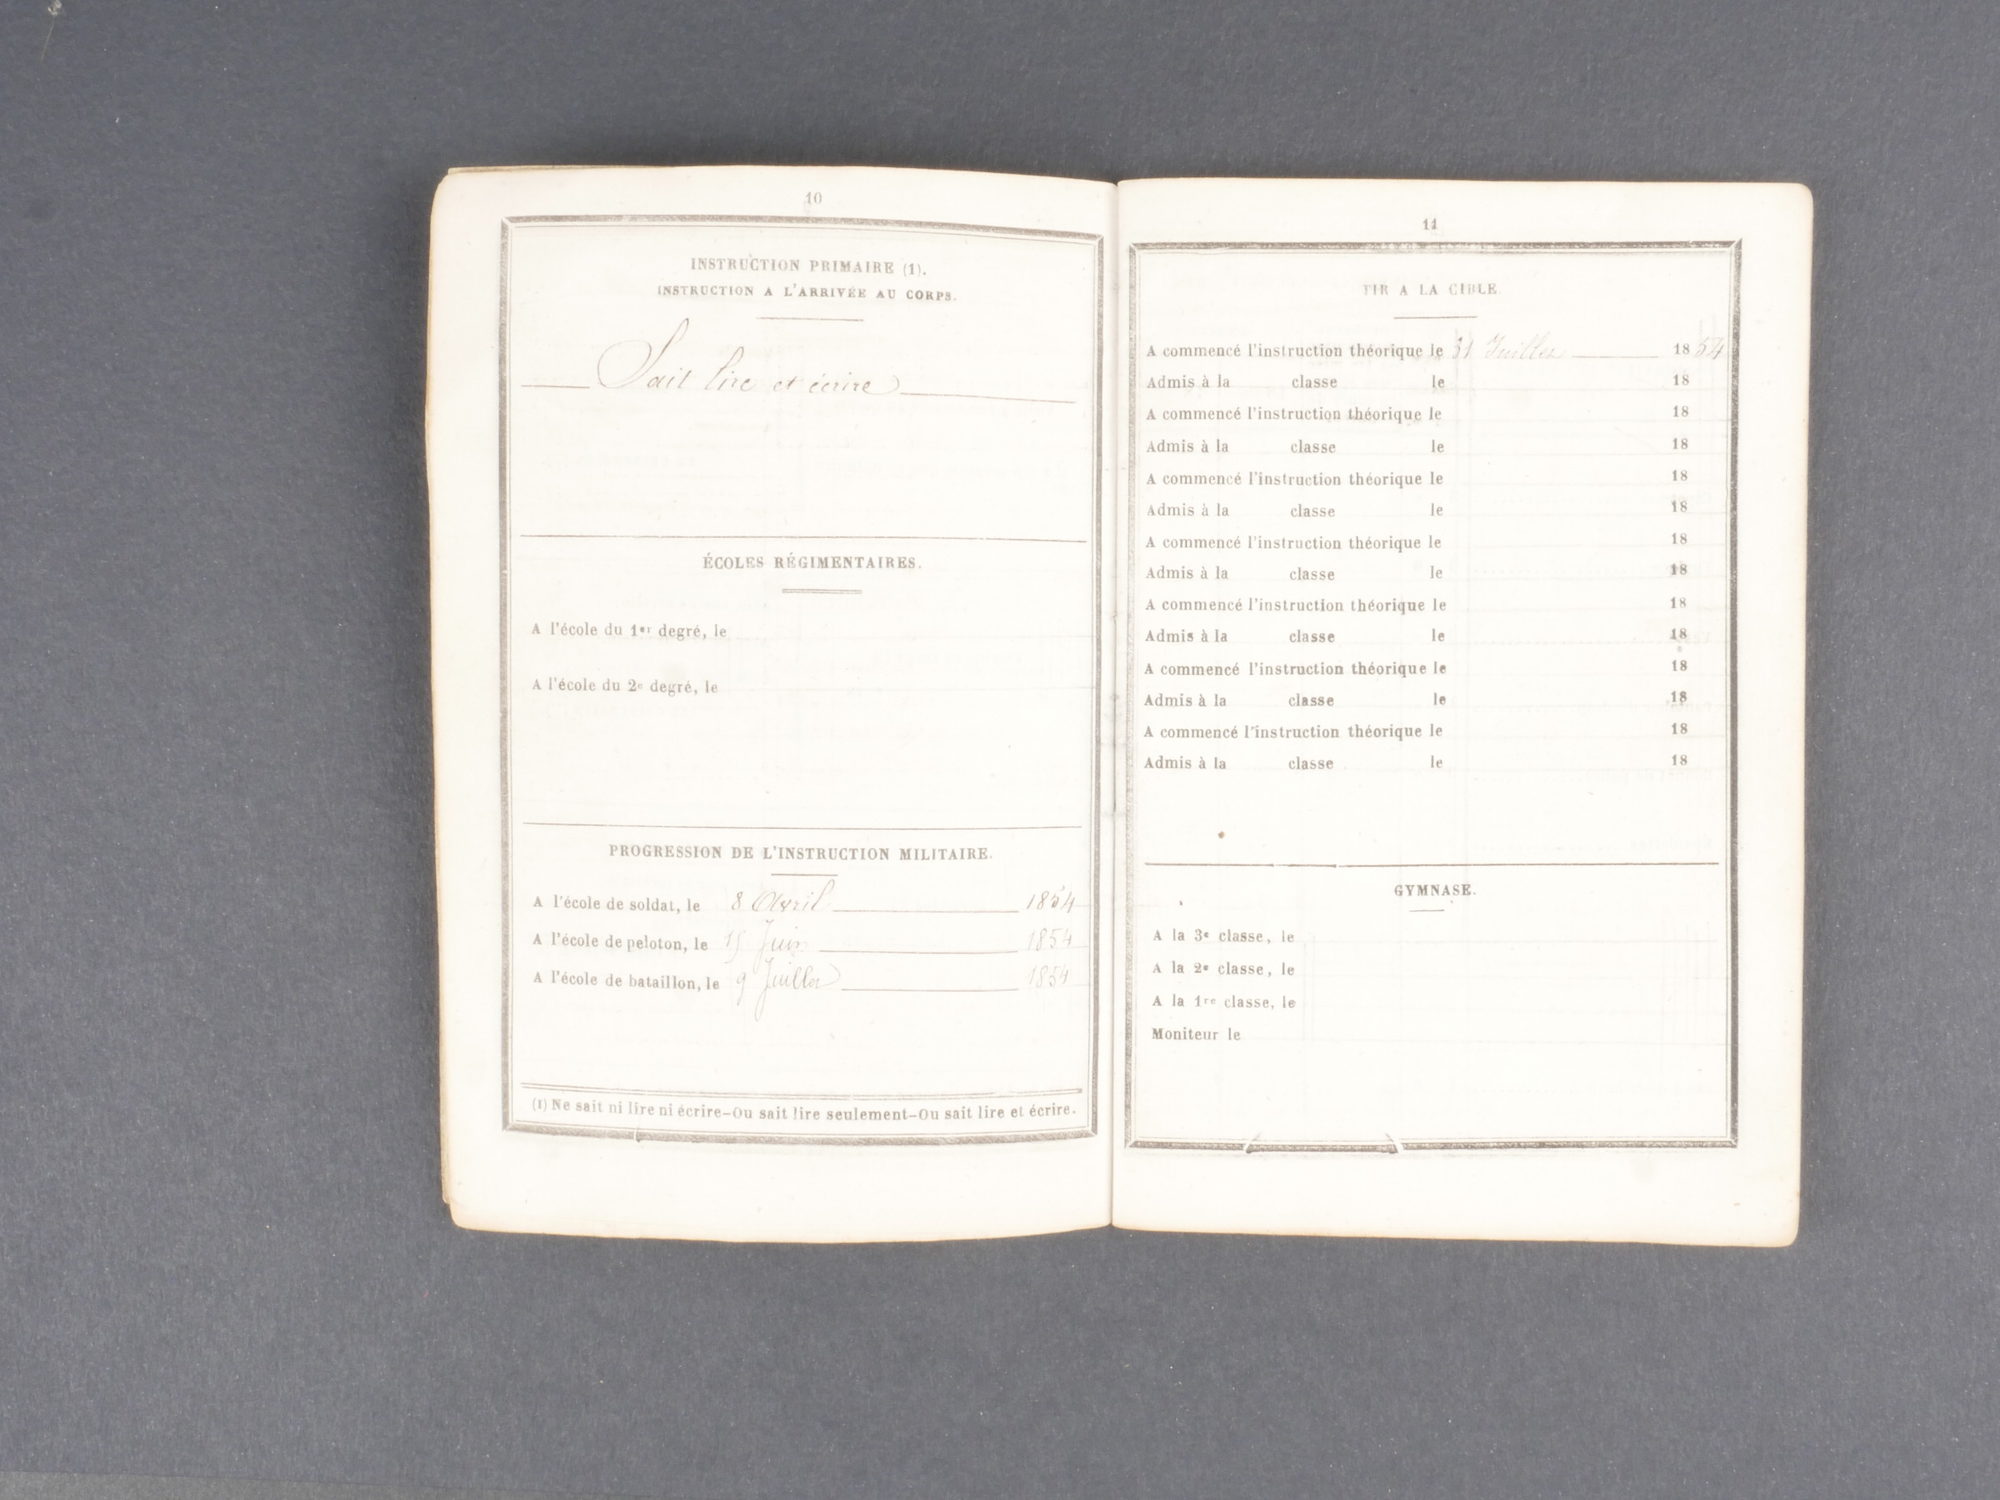 10
INSTRUCTION PRIMAIRE (1).
INSTRUCTION A L'ARRIVÉE AU CORPS.
Sait lire et écrire
ÉCOLES RÉGIMENTAIRES.
A l'école du 1er degré, le
A l'école du 2e degré, le
PROGRESSION DE L'INSTRUCTION MILITAIRE.
A l'école de soldat, le 8 Avril 1854
A l'école de peloton, le 15 Juin 1854
A l'école de bataillon, le 9 Juillet 1854
(1) Ne sait ni lire ni écrire—Ou sait lire seulement—Ou sait lire et écrire.
11
TIR A LA CIBLE.
A commencé l'instruction théorique le 31 Juillet 1854
Admis à la classe le 18
A commencé l'instruction théorique le 18
Admis à la classe le 18
A commencé l'instruction théorique le 18
Admis à la classe le 18
A commencé l'instruction théorique le 18
Admis à la classe le 18
A commencé l'instruction théorique le 18
Admis à la classe le 18
A commencé l'instruction théorique le 18
Admis à la classe le 18
A commencé l'instruction théorique le 18
Admis à la classe le 18
GYMNASE.
A la 3e classe, le
A la 2e classe, le
A la 1re classe, le
Moniteur le